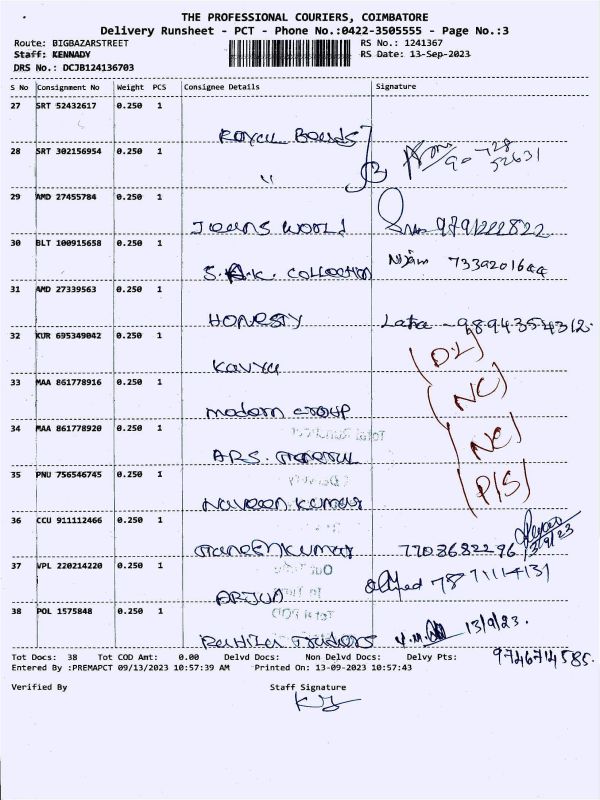 THE PROFESSIONAL COURIERS, COIMBATORE
Delivery Runsheet - PCT - Phone No.:0422-3505555 - Page No.:3
Route: BIGBAZARSTREET RS No.: 1241367
Staff: KENNADY RS Date: 13-Sep-2023
DRS No.: DCJB124136703
S No Consignment No Weight PCS Consignee Details Signature
27 SRT 52432617 0.250 1
Royal Bonds
28 SRT 302156954 0.250 1
"
29 AMD 27455784 0.250 1
Jeans World
30 BLT 100915658 0.250 1
S.A.K. Collection
31 AMD 27339563 0.250 1
HONESTY Latha - 9894354312.
32 KUR 695349042 0.250 1 (DL)
Kavya
33 MAA 861778916 0.250 1 (NC)
modern Group
34 MAA 861778920 0.250 1 (NC)
A.R.S.
35 PNU 756546745 0.250 1 (P/S)
Naveen Kumar
36 CCU 911112466 0.250 1
Ganesh Kumar 7703682296 13/9/23
37 VPL 220214220 0.250 1
ARJUN
38 POL 1575848 0.250 1
Traders 13/9/23.
Tot Docs: 38 Tot COD Amt: 0.00 Delvd Docs: Non Delvd Docs: Delvy Pts: 9746714585.
Entered By :PREMAPCT 09/13/2023 10:57:39 AM Printed On: 13-09-2023 10:57:43
Verified By Staff Signature